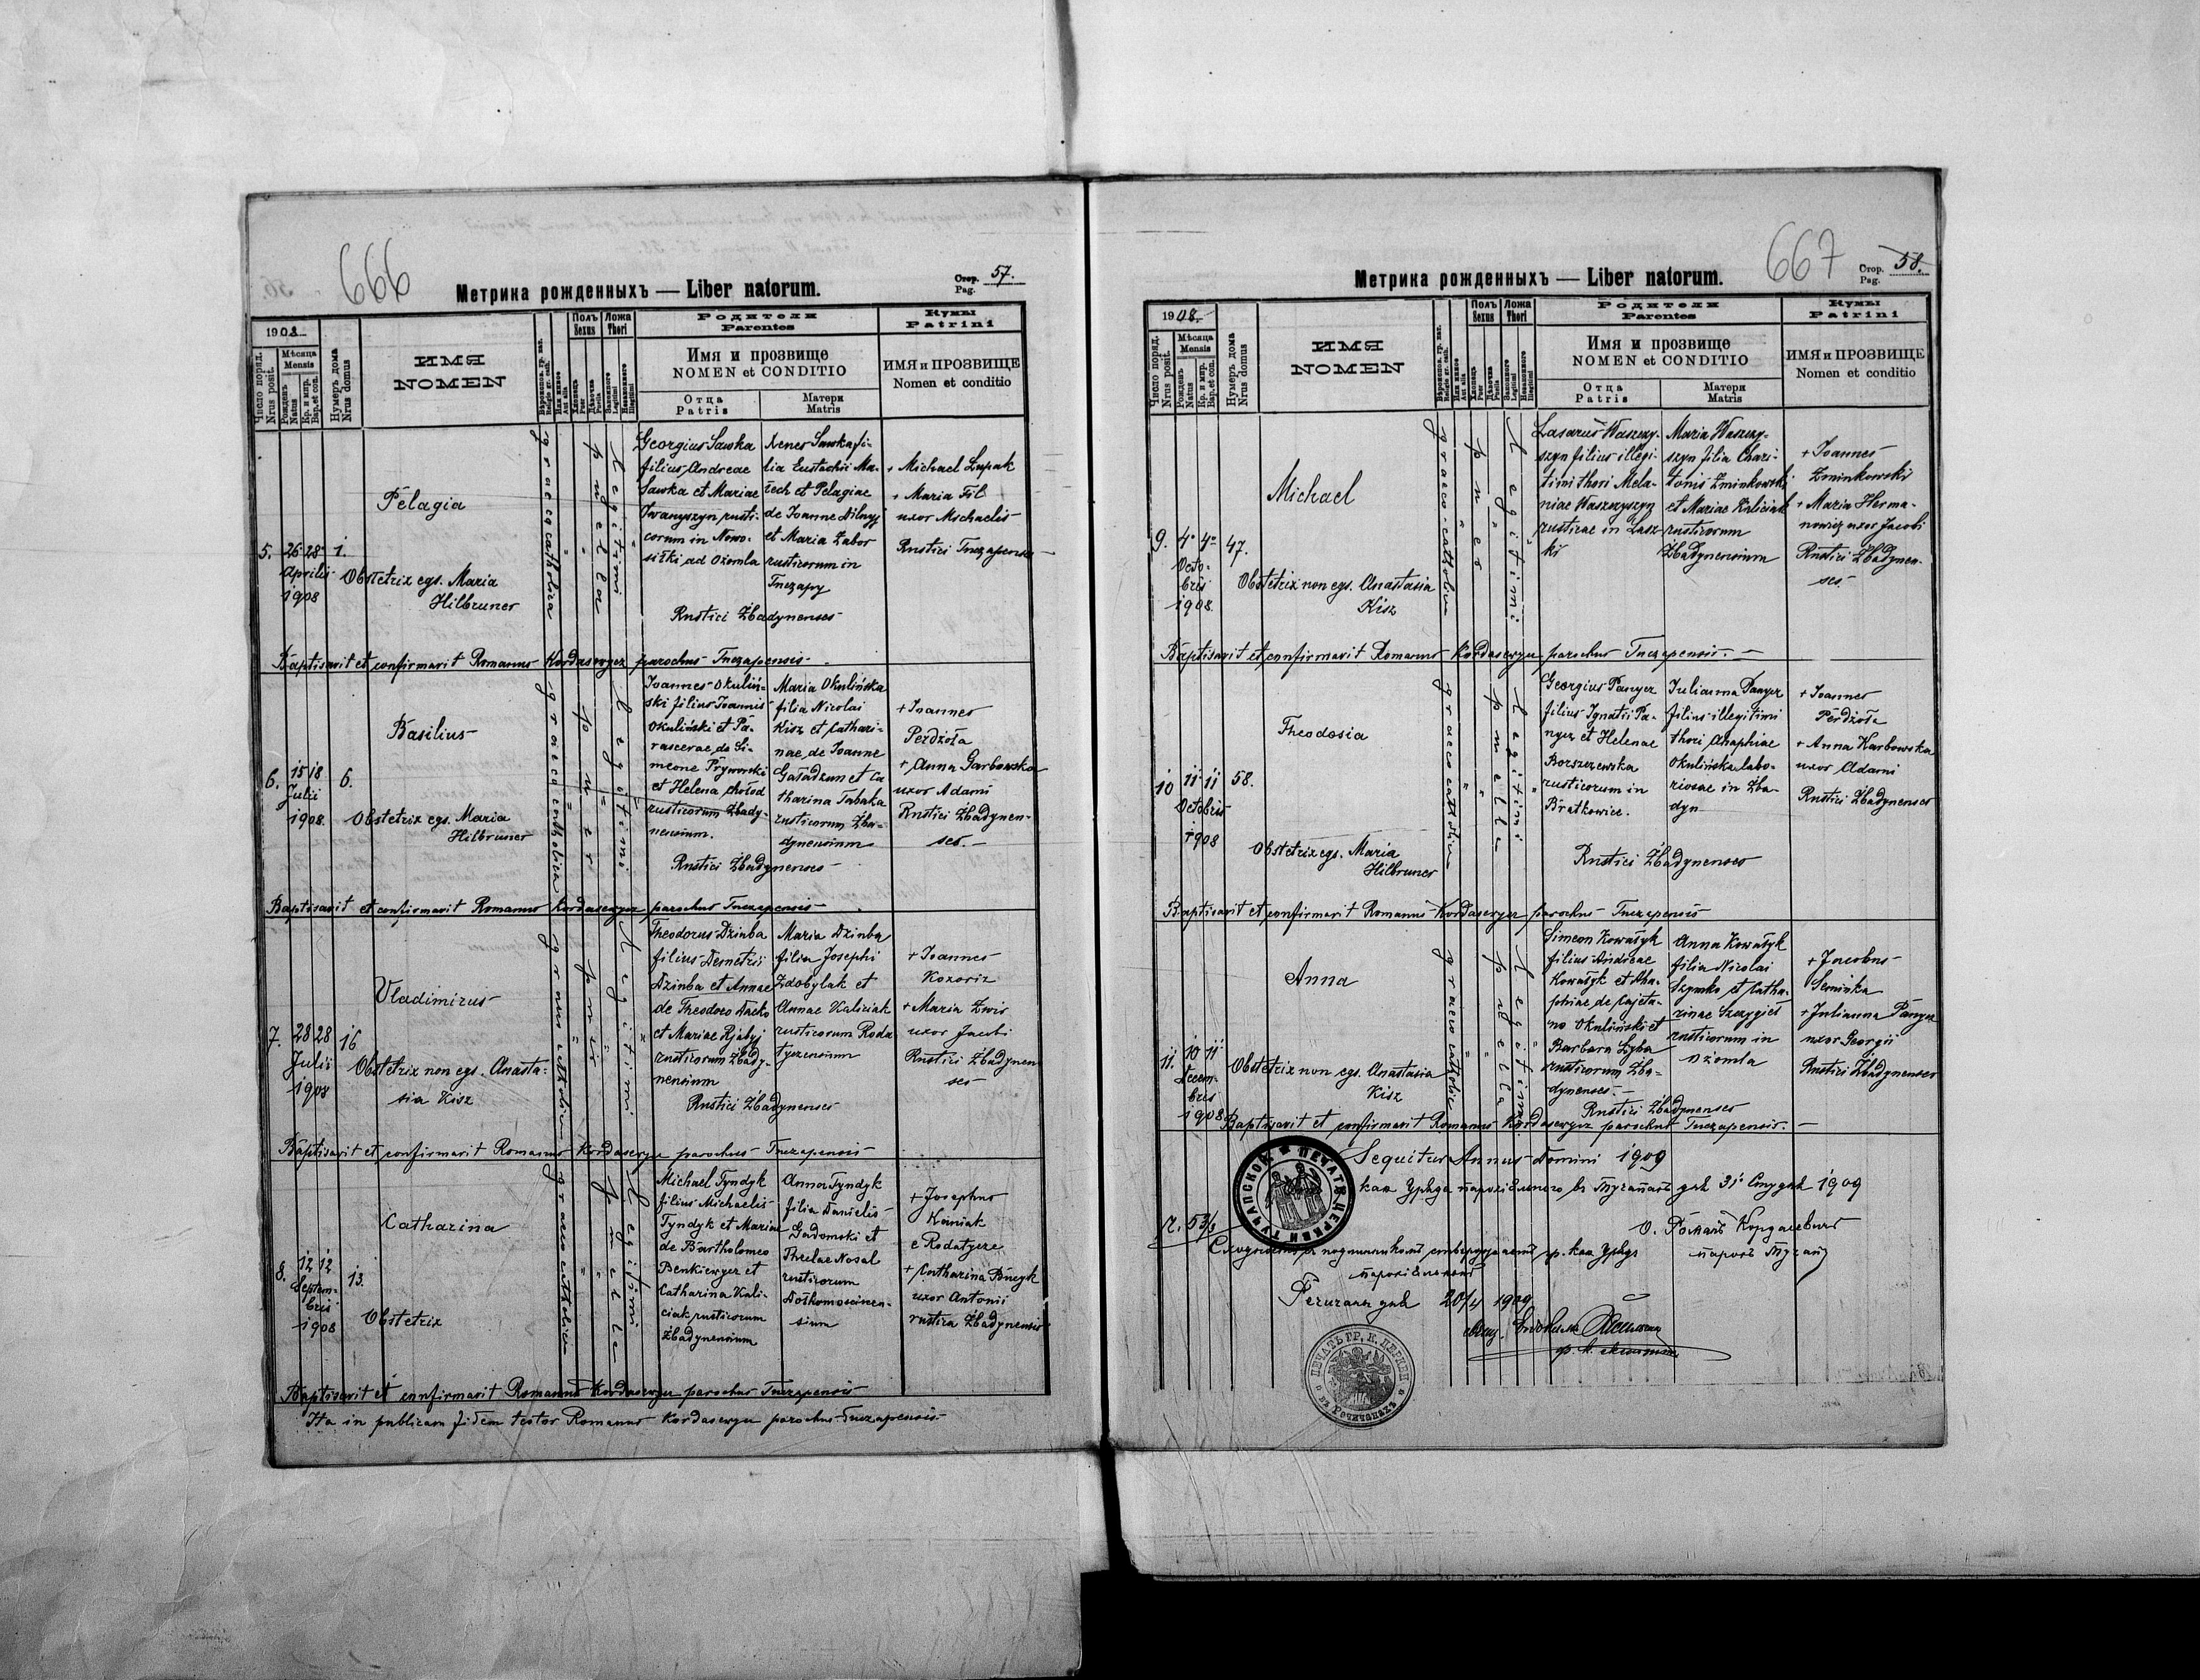 666
Метрика рожденныхъ — Liber natorum.
Стор. Pag. 57.
1908
Число поряд. Nrus posit.
Мѣсяца Mensis
Рожденъ Natus
Кр. и мір. Bap. et con.
Нумеръ дома Nrus domus
ИМЯ NOMEN
Полъ Sexus
Ложа Thori
Родители Parentes
Имя и прозвище NOMEN et CONDITIO
Отца Patris
Матери Matris
Кумы Patrini
ИМЯ и ПРОЗВИЩЕ Nomen et conditio
5.
26 28
Aprilis
1908
1.
Pelagia
Obstetrix egs. Maria
Hilbruner
graeco catholica
puella
Legitimi
Georgius Sawka
filius Andreae
Sawka et Mariae
Iwanyszyn rusti-
corum in Nowo-
siłki ad Ożomla
Xenes Sawka fi-
lia Eustachii Ma-
zech et Pelagiae
de Joanne Dilnyj
et Maria Zabor
rusticorum in
Tuczapy
Rustici Zbadynenses
+ Michael Lupak
+ Maria Fil
uxor Michaelis
Rustici Tuczapenses
Baptisavit et confirmavit Romanus Kordasewycz parochus Tuczapensis
6.
15 18
Julii
1908.
6.
Basilius
Obstetrix egs. Maria
Hilbruner
graeco catholica
puer
Legitimi
Joannes Okuliń-
ski filius Joannis
Okuliński et Pa-
rascevae, de Si-
meone Pryworski
et Helena Chołod
rusticorum Zbady-
nensium.
Maria Okulińska
filia Nicolai
Kisz et Cathari-
nae, de Joanne
Gaładzun et Ca
tharina Tabaka
rusticorum Zba-
dynensium
Rustici Zbadynenses
+ Joannes
Perdżoła
+ Anna Garbowska
uxor Adami
Rustici Zbadynen-
ses. —
Baptisavit et confirmavit Romanus Kordasewycz parochus Tuczapensis
7.
28 28
Julii
1908
16
Vladimirus
Obstetrix non egs. Anasta-
sia Kisz
Legitimi
Theodorus Dzinba
filius Demetrii
Dzinba et Annae
de Theodoro Dacko
et Mariae Rjabyj
rusticorum Zbady-
nensium
Maria Dzinba
filia Josephi
Zdobylak et
Annae Kaliciak
rusticorum Roda
tyczensium
Rustici Zbadynenses
+ Joannes
Kozoriz
+ Maria Zwir
uxor Jacobi
Rustici Zbadynen
ses —
Baptisavit et confirmavit Romanus Kordasewycz parochus Tuczapensis
8.
12 12
Septem-
bris
1908
13.
Catharina
Obstetrix
graeco catholica
puella
Legitimi
Michael Tyndyk
filius Michaelis
Tyndyk et Mariae
de Bartholomeo
Benkiewycz et
Catharina Kali-
ciak rusticorum
Zbadynensium
Anna Tyndyk
filia Danielis
Gadomski et
Theclae Nosal
rusticorum
Dołhomościscen-
sium
+ Josephus
Kałniak
e Rodatycze
+ Catharina Bucyk
uxor Antonii
rustica Zbadynensis
Baptisavit et confirmavit Romanus Kordasewycz parochus Tuczapensis
Ita in publicam fidem testor Romanus Kordasewycz parochus Tuczapensis
667
Метрика рожденныхъ — Liber natorum.
Стор. Pag. 58.
1908.
Число поряд. Nrus posit.
Мѣсяца Mensis
Рожденъ Natus
Кр. и мір. Bap. et con.
Нумеръ дома Nrus domus
ИМЯ NOMEN
Полъ Sexus
Ложа Thori
Родители Parentes
Имя и прозвище NOMEN et CONDITIO
Отца Patris
Матери Matris
Кумы Patrini
ИМЯ и ПРОЗВИЩЕ Nomen et conditio
9.
4 4
Octo-
bris
1908.
47.
Michael
Obstetrix non egs. Anastasia
Kisz
graeco-catholica
puer
Legitimi
Lasarus Waszczy-
szyn filius illegi-
timi thori Mela-
niae Waszczyszyn
rusticae in Lasz-
ki
Maria Waszczy-
szyn filia Chari-
tonis Zminkowski
et Mariae Kaliciak
rusticorum
Zbadynensium
+ Joannes
Zminkowski
+ Maria Herma-
nowicz uxor Jacobi
Rustici Zbadynen-
ses.
Baptisavit et confirmavit Romanus Kordasewycz parochus Tuczapensis. —
10
11 11
Octobris
1908
58.
Theodosia
Obstetrix egs. Maria
Hilbruner
graeco catholica
puella
Legitimi
Georgius Panycz
filius Ignatii Pa-
nycz et Helenae
Borszczewska
rusticorum in
Bratkowice.
Julianna Panycz
filius illegitimi
thori Anaphiae
Okulińska labo-
riosae in Zba-
dyn
Rustici Zbadynenses
+ Joannes
Perdżoła
+ Anna Karbowska
uxor Adami
Rustici Zbadynenses
Baptisavit et confirmavit Romanus Kordasewycz parochus Tuczapensis
11.
10 11
Decem-
bris
1908
Anna
Obstetrix non egs. Anastasia
Kisz
graeco catholica
puella
Legitimi
Simeon Kowałyk
filius Andreae
Kowałyk et Ana-
phiae de Cajeta-
no Okuliński et
Barbara Łyba
rusticorum Zba-
dynenses. —
Anna Kowałyk
filia Nicolai
Szymko et Catha-
rinae Szczygieł
rusticorum in
Ożomla
Rustici Zbadynenses
+ Jacobus
Seminka
+ Julianna Panycz
uxor Georgii
Rustici Zbadynenses
Baptisavit et confirmavit Romanus Kordasewycz parochus Tuczapensis. —
Sequitur Annus Domini 1909
31 1909
о. Романъ Кордасевичъ
Ч. 53/9
20/4 1909
ПЕЧАТЬ ЦЕРКВИ ТУЧАПСКОЙ
ПЕЧАТЬ ГР. К. ЦЕРКВИ въ Речичанахъ